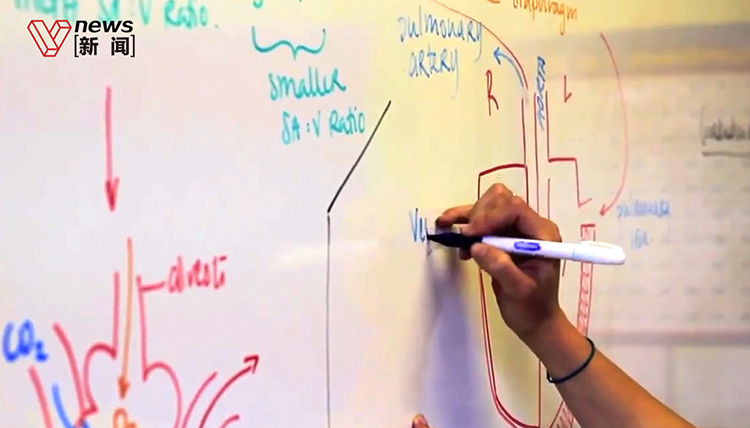 SA:V Ratio.
news
[新闻]
diaphragm
smaller
SA:V Ratio
pulmonary
artery
R
AORTA
L
pulmonary
alveoli
CO2